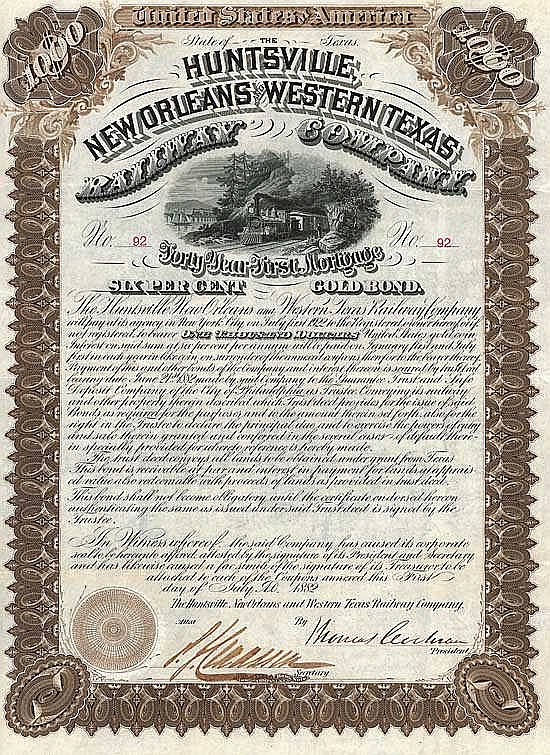 United States of America
1000
1000
State of Texas.
THE
HUNTSVILLE,
NEW ORLEANS AND WESTERN TEXAS
RAILWAY COMPANY.
No. 92 No. 92
Forty Year First Mortgage
SIX PER CENT GOLD BOND.
The Huntsville New Orleans and Western Texas Railway Company
will pay at its agency in New York City on July first 1922 to the Registered owner hereof or if
not registered to bearer ONE THOUSAND DOLLARS United States gold coin
Interest on said sum at six per cent per annum will be paid on January first and July
first in each year in like coin on surrender of the annexed coupons therefor to the bearer thereof
Payment of this and other bonds of the Company and interest thereon is secured by trust deed
bearing date June 24th 1882 made by said Company to the Guarantee Trust and Safe
Deposit Company of the City of Philadelphia as Trustee conveying its railway
and other property therein described which Trust deed provides for the issue of said
Bonds as required for the purposes and to the amount therein set forth also for the
right in the Trustee to declare the principal due and to exercise the powers of entry
and sale therein granted and conferred in the several cases of default there-
in specially provided for to which reference is hereby made.
The said deed also conveys all lands to be obtained under grant from Texas
This bond is receivable at par and interest in payment for lands of apprais-
ed value also redeemable with proceeds of lands as provided in trust deed.
This bond shall not become obligatory until the certificate endorsed hereon
authenticating the same as issued under said Trust deed is signed by the
Trustee.
In Witness whereof, the said Company has caused its corporate
seal to be hereunto affixed attested by the signature of its President and Secretary
and has likewise caused a fac simile of the signature of its Treasurer to be
attached to each of the Coupons annexed this First
day of July A.D. 1882
The Huntsville, New Orleans and Western Texas Railway Company,
Attest By
President
Secretary